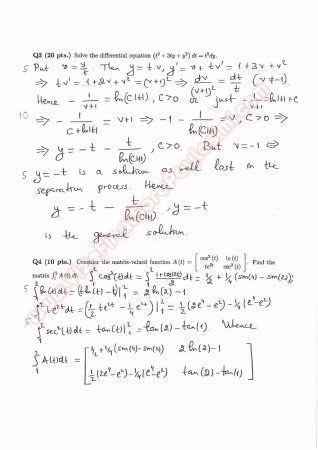 Q5 (20 pts.) Solve the differential equation (t² + 3ty + y²) dt = t²dy.
5 Put v = y/t. Then y = t.v, y' = v + tv' = 1+3v+v²
⇒ tv' = 1+2v+v² = (v+1)² ⇒ dv/(v+1)² = dt/t (v≠-1)
Hence -1/(v+1) = ln(C|t|), C>0 or just -1/(v+1) = ln|t|+C
10 ⇒ -1/(C+ln|t|) = v+1 ⇒ -1 - 1/ln(C|t|) = v, C>0 ⇒
⇒ y = -t - t/ln(C|t|), C>0. But v=-1 ⇔
5 y=-t is a solution as well lost in the
separation process. Hence
y = -t - t/ln(C|t|), y=-t
is the general solution.
Q4 (10 pts.) Consider the matrix-valued function A(t) = [cos²(t) ln(t)
te²ᵗ sec²(t)]. Find the
matrix ∫₁² A(t) dt. ∫₁² cos²(t)dt = ∫₁² (1+cos(2t))/2 dt = 1/2 + 1/4 (sin(4)-sin(2));
5 ∫₁² ln(t)dt = (t ln(t)-t)|₁² = 2ln(2)-1.
∫₁² te²ᵗdt = (1/2 te²ᵗ - 1/4 e²ᵗ)|₁² = 1/2 (2e⁴-e²) - 1/4 (e⁴-e²)
5 ∫₁² sec²(t)dt = tan(t)|₁² = tan(2)-tan(1). Whence
∫₁² A(t)dt = [1/2+1/4(sin(4)-sin(2)) 2ln(2)-1
1/2(2e⁴-e²)-1/4(e⁴-e²) tan(2)-tan(1)]